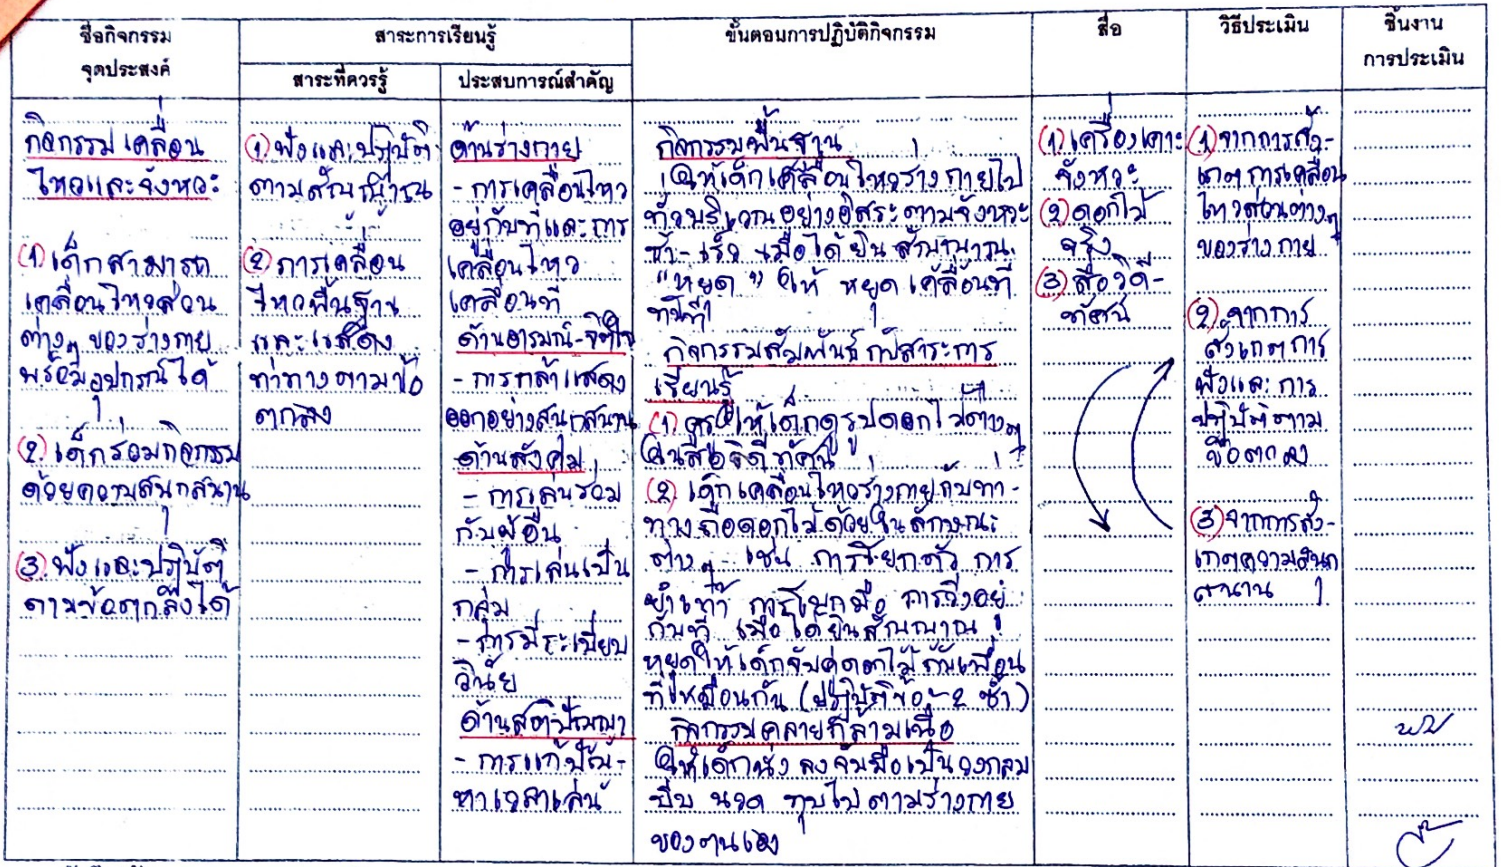 ชื่อกิจกรรม
จุดประสงค์
สาระการเรียนรู้
สาระที่ควรรู้
ประสบการณ์สำคัญ
ขั้นตอนการปฏิบัติกิจกรรม
สื่อ
วิธีประเมิน
ชิ้นงาน
การประเมิน
กิจกรรมเคลื่อน
ไหวและจังหวะ
(1) เด็กสามารถ
เคลื่อนไหวส่วน
ต่างๆ ของร่างกาย
พร้อมอุปกรณ์ได้
(2) เด็กร่วมกิจกรรม
ด้วยความสนุกสนาน
(3) ฟังและปฏิบัติ
ตามข้อตกลงได้
(1) ฟังและปฏิบัติ
ตามสัญญาณ
(2) การเคลื่อน
ไหวพื้นฐาน
และแสดง
ท่าทางตามข้อ
ตกลง
ด้านร่างกาย
- การเคลื่อนไหว
อยู่กับที่และการ
เคลื่อนไหว
เคลื่อนที่
ด้านอารมณ์-จิตใจ
- การกล้าแสดง
ออกอย่างสนุกสนาน
ด้านสังคม
- การเล่นร่วม
กับผู้อื่น
- การเล่นเป็น
กลุ่ม
- การมีระเบียบ
วินัย
ด้านสติปัญญา
- การแก้ปัญ-
หาเวลาเล่น
กิจกรรมพื้นฐาน
ให้เด็กเคลื่อนไหวร่างกายไป
ทั่วบริเวณอย่างอิสระตามจังหวะ
ช้า-เร็ว เมื่อได้ยินสัญญาณ
"หยุด" ให้ หยุดเคลื่อนที่
ทันที
กิจกรรมสัมพันธ์กับสาระการ
เรียนรู้
(1) ครูให้เด็กดูรูปดอกไม้ต่างๆ
ในสื่อวิดีทัศน์
(2) เด็กเคลื่อนไหวร่างกายกับท่า-
ทางถือดอกไม้ด้วยในลักษณะ
ต่างๆ เช่น การโยกตัว การ
ย่ำเท้า การโบกมือ การวิ่งอยู่
กับที่ เมื่อได้ยินสัญญาณ
หยุดให้เด็กจับคู่ดอกไม้กับเพื่อน
ที่เหมือนกัน (ปฏิบัติข้อ 2 ซ้ำ)
กิจกรรมคลายกล้ามเนื้อ
ให้เด็กนั่งลงจับมือเป็นวงกลม
บีบ นวด ทุบไปตามร่างกาย
ของตนเอง
(1) เครื่องเคาะ
จังหวะ
(2) ดอกไม้
จริง
(3) สื่อวิดี-
ทัศน์
(1) จากการสัง-
เกตการเคลื่อน
ไหวส่วนต่างๆ
ของร่างกาย
(2) จากการ
สังเกตการ
ฟังและการ
ปฏิบัติตาม
ข้อตกลง
(3) จากการสัง-
เกตความสนุก
สนาน